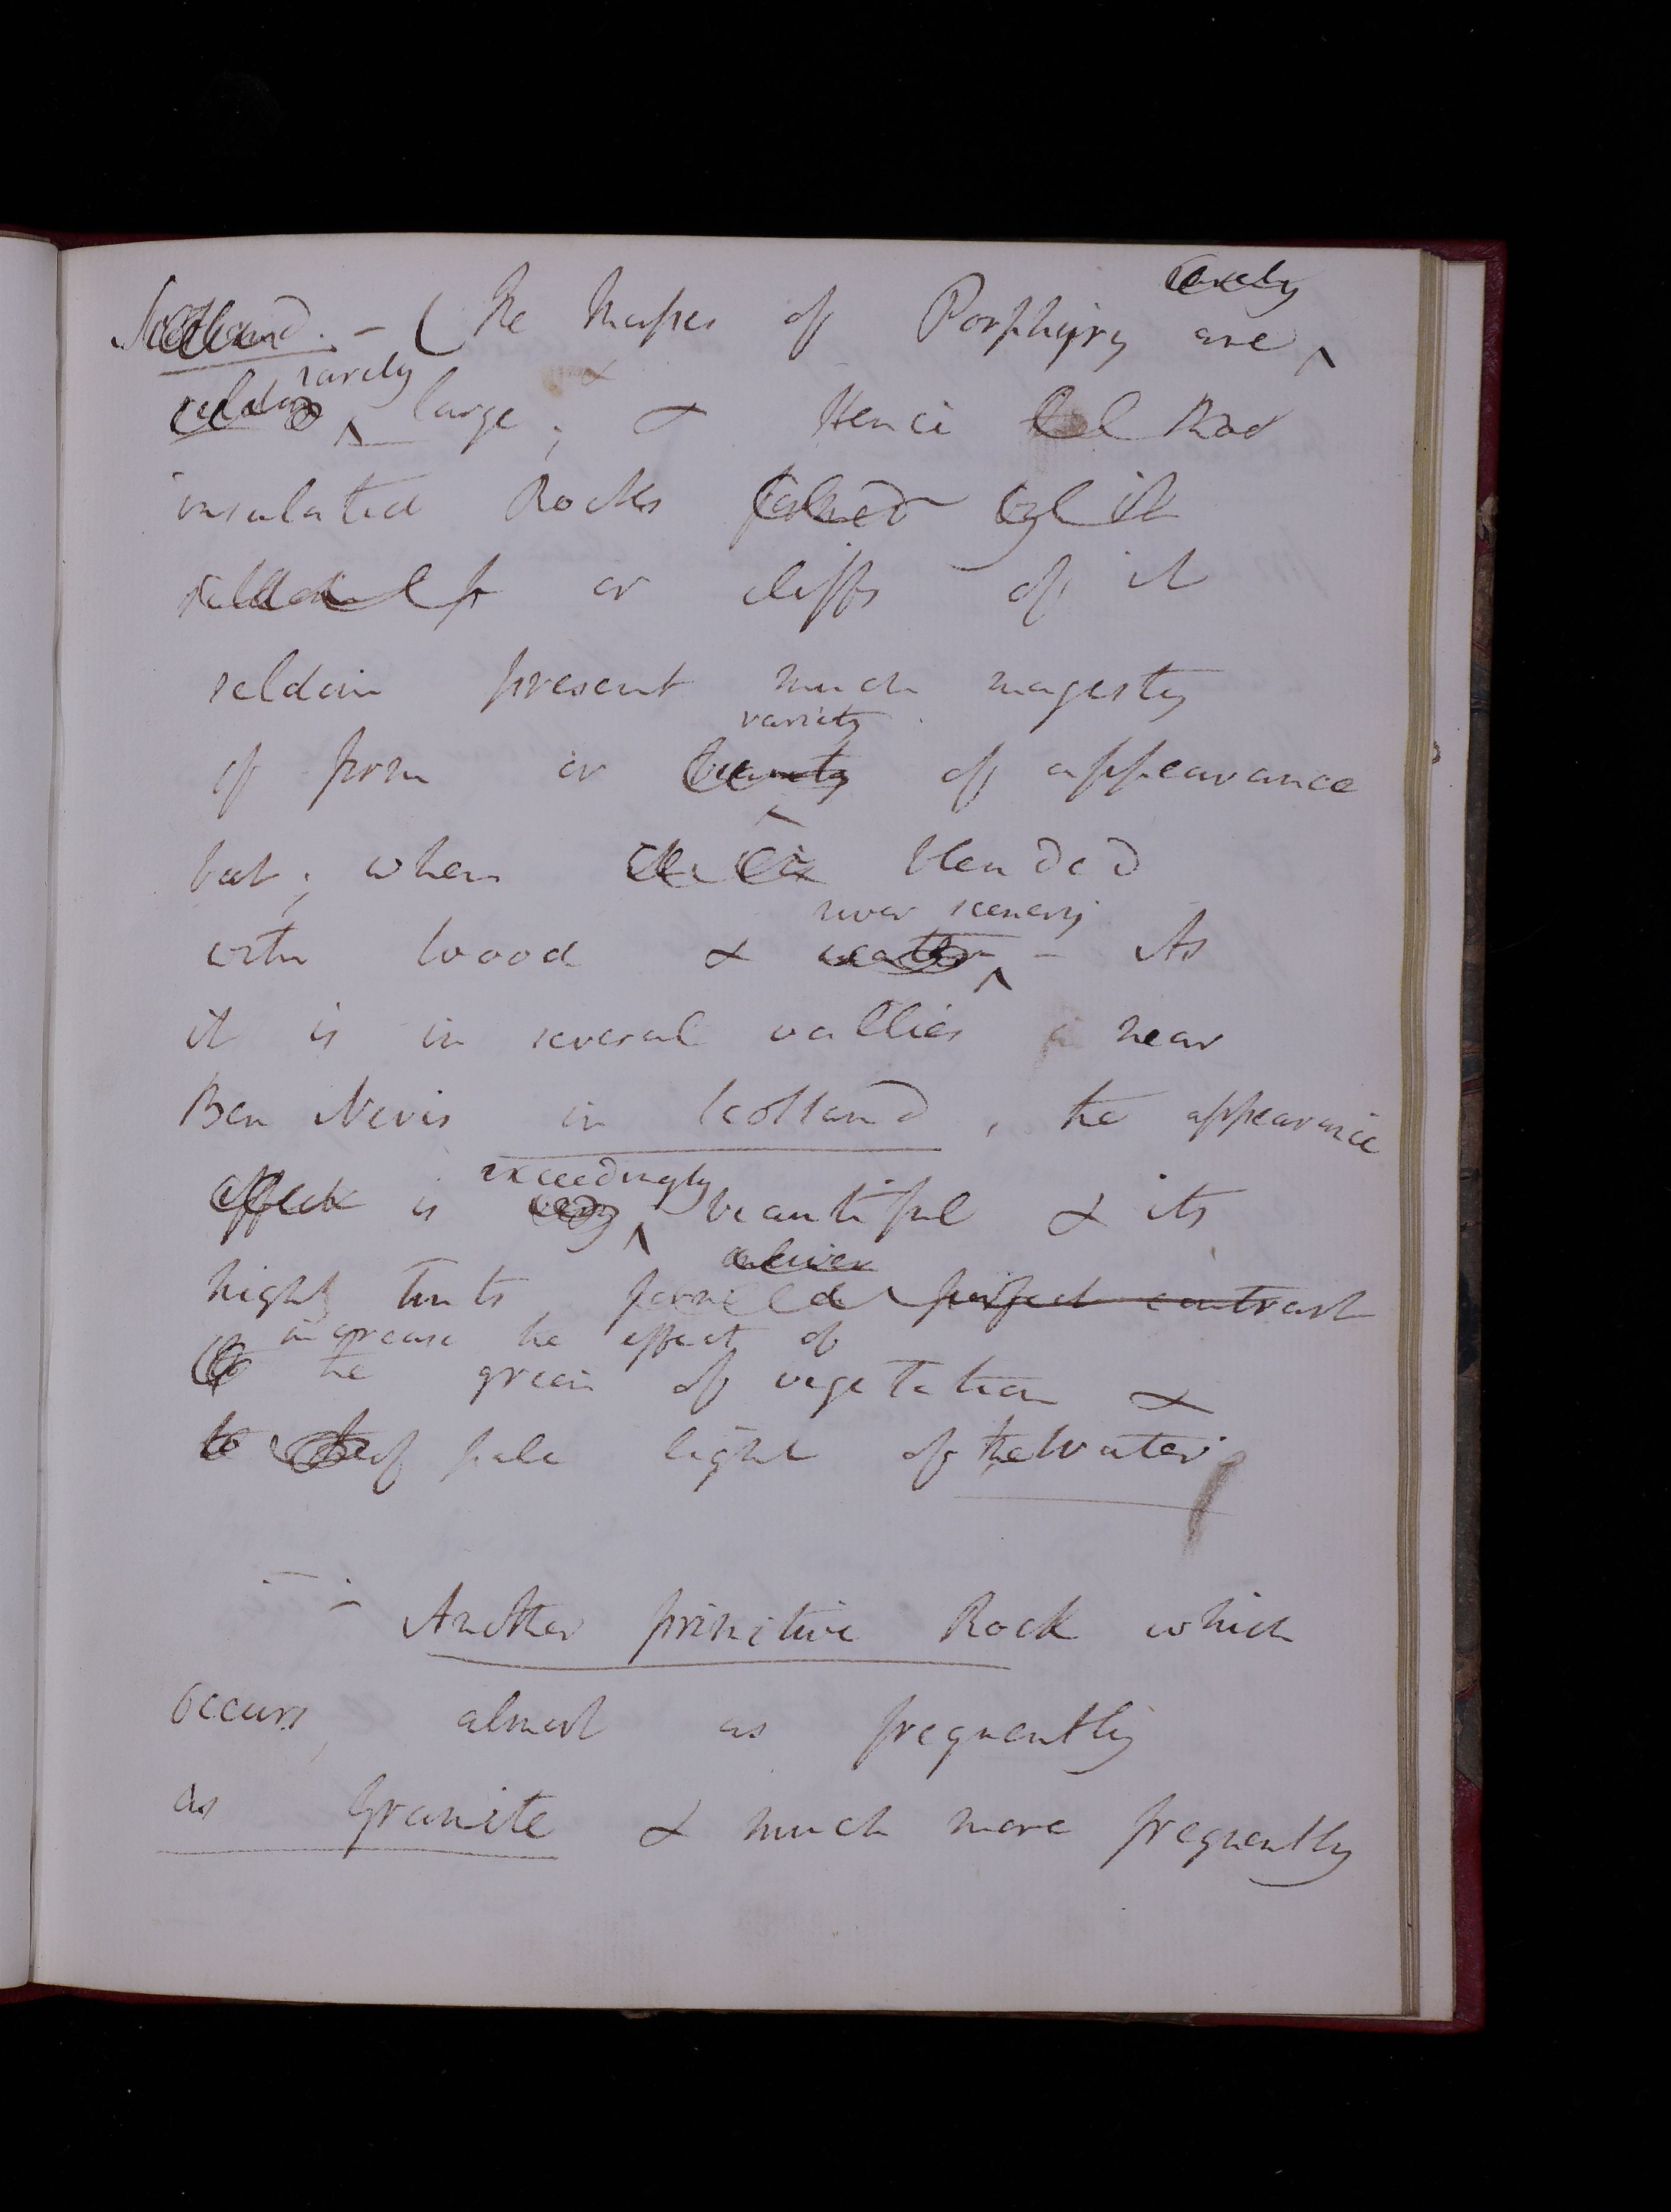 Scotland. – (The Masses of Porphyry are rarely
seldom rarely large; & Hence
insulated Rocks formed by it
or cliffs of it
seldom present much magesty
of form or beauty variety of appearance
but; when blended
with wood & water river scenery – As
it is in several vallies near
Ben Nevis in Scotland, the appearance
effect is very exceedingly beautiful & its
high tints, perfect contrast
increase the effect of
to the green of vegetation &
to the of pale light of the Water;
– Another primitive Rock which
occurs, almost as frequently
as Granite & much more frequently